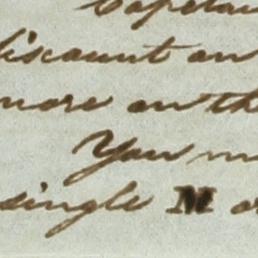 discount on
more on th
You m
single M o